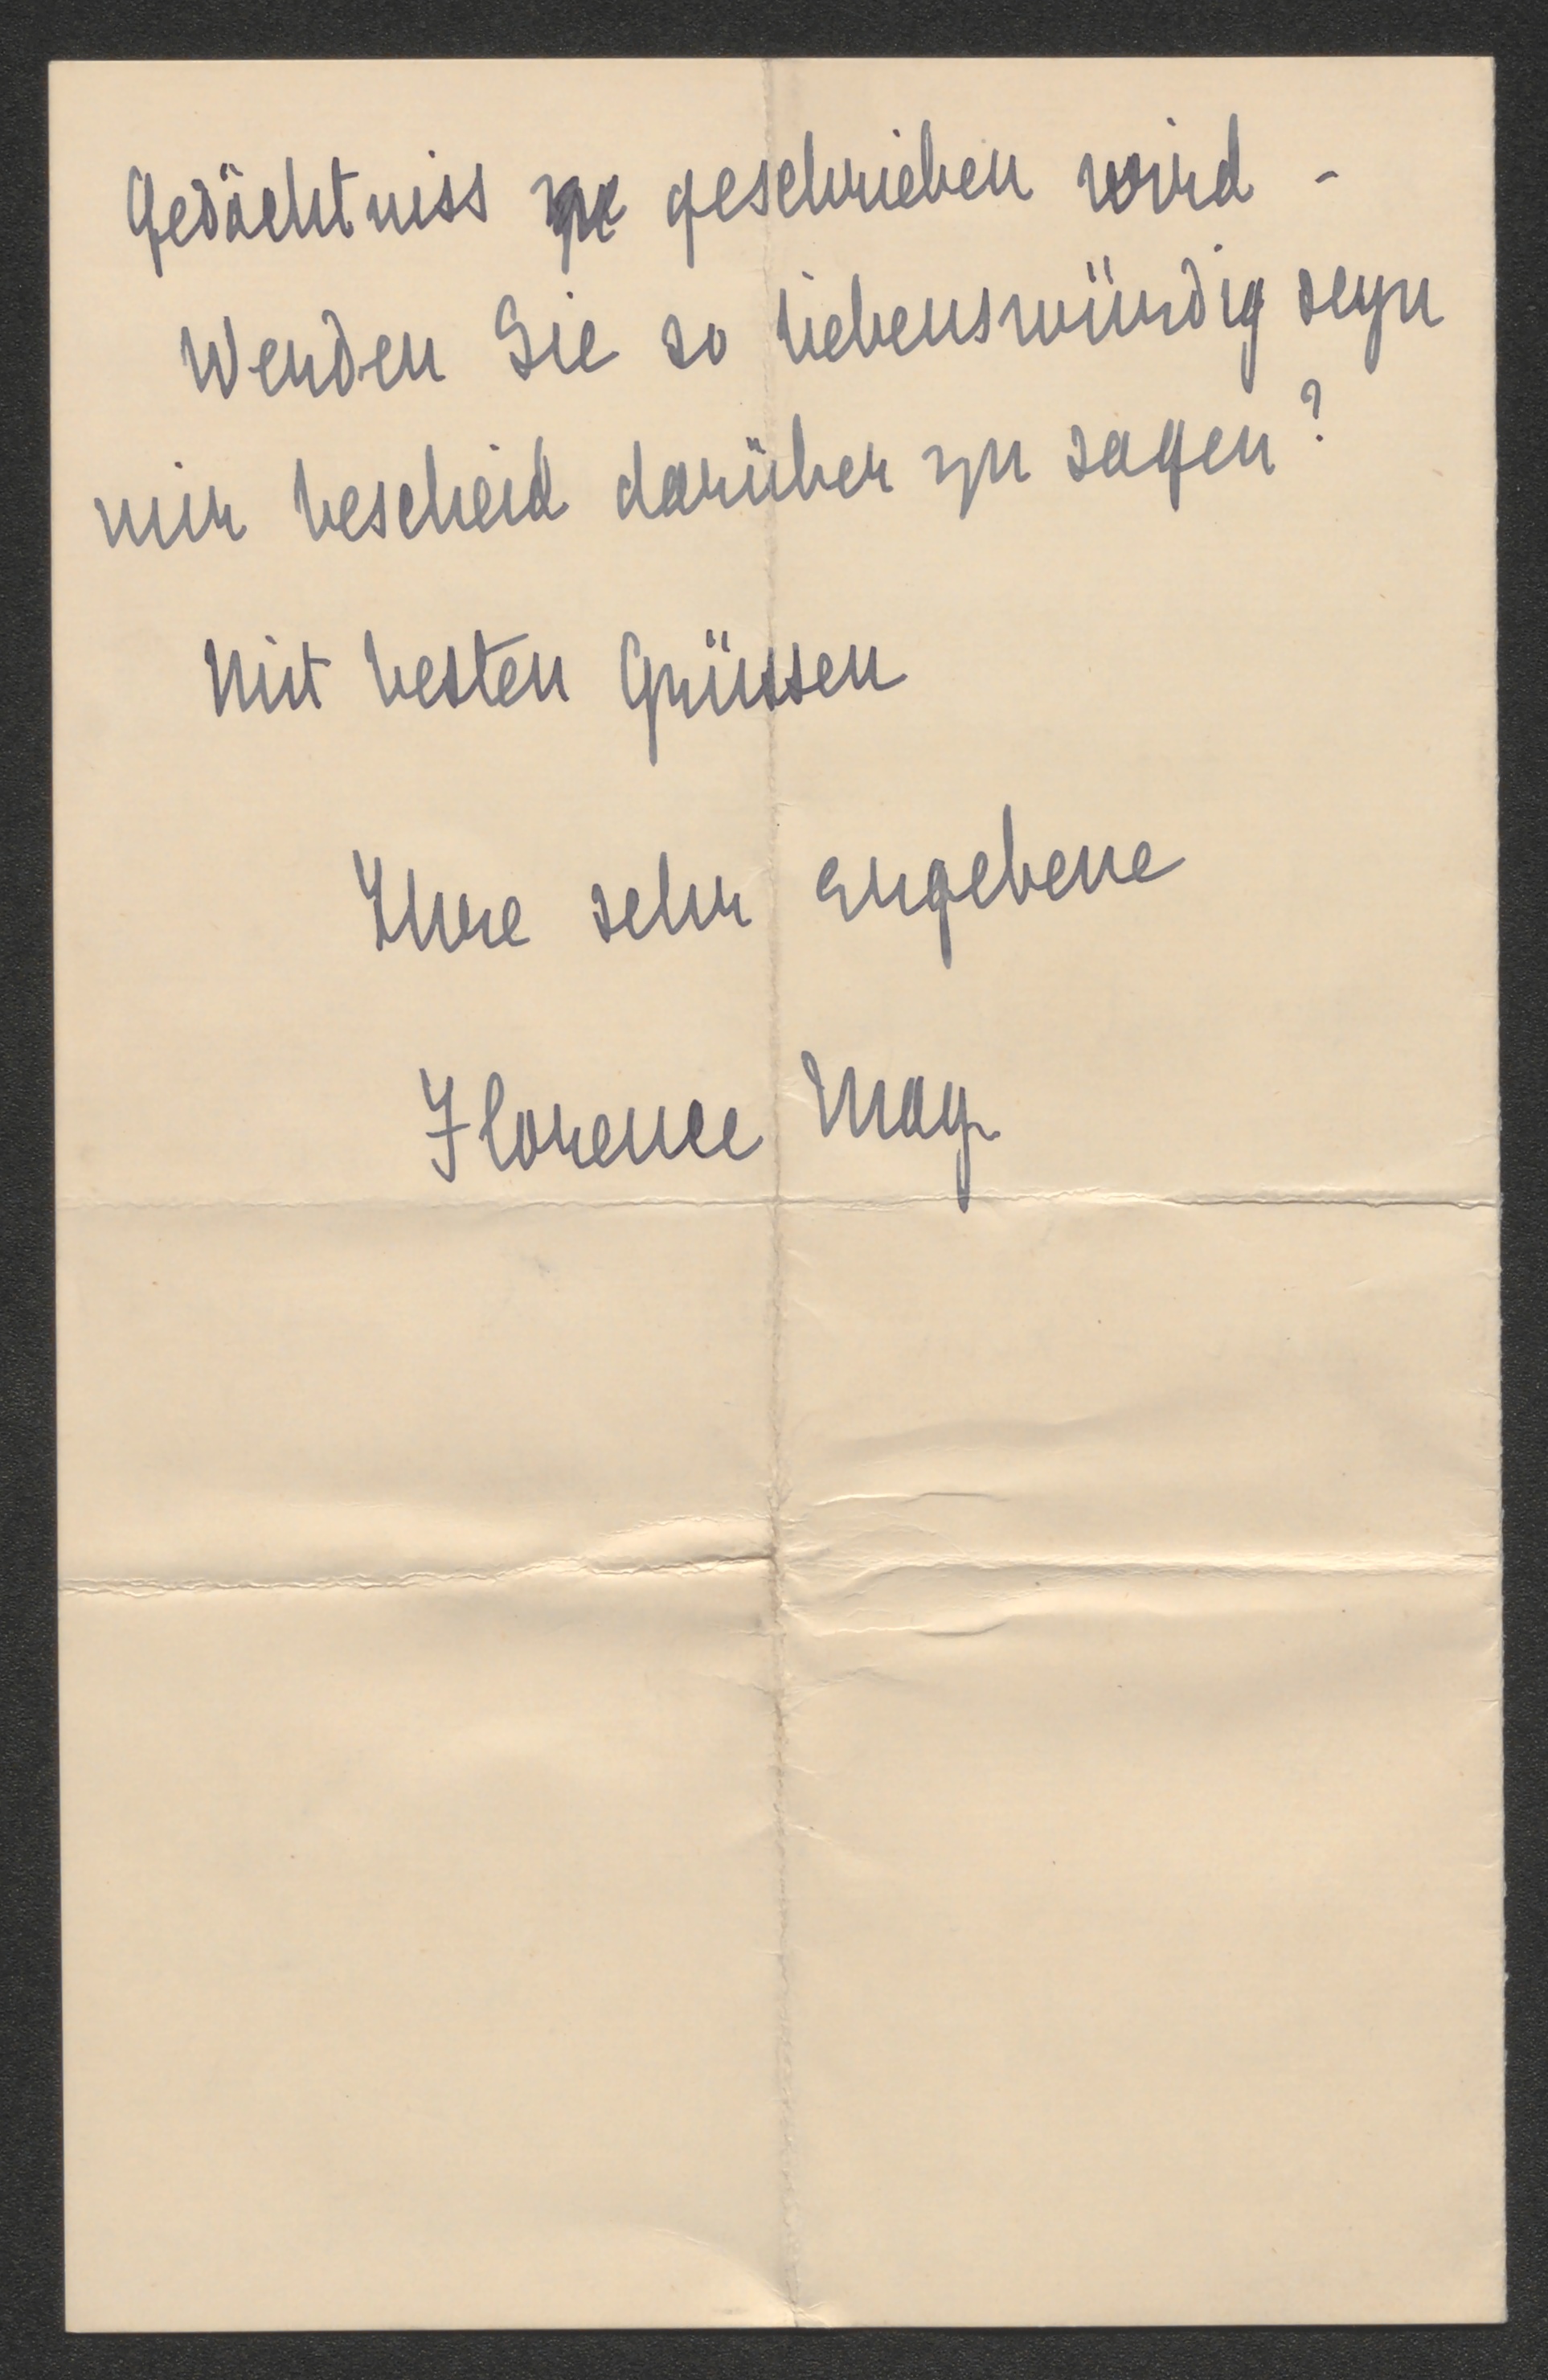 Gedächtniss geschrieben wird -
Werden Sie so liebenswürdig seyn
mir bescheid darüber zu sagen?
Mit besten Grüssen
Ihre sehr ergebene
Florence May